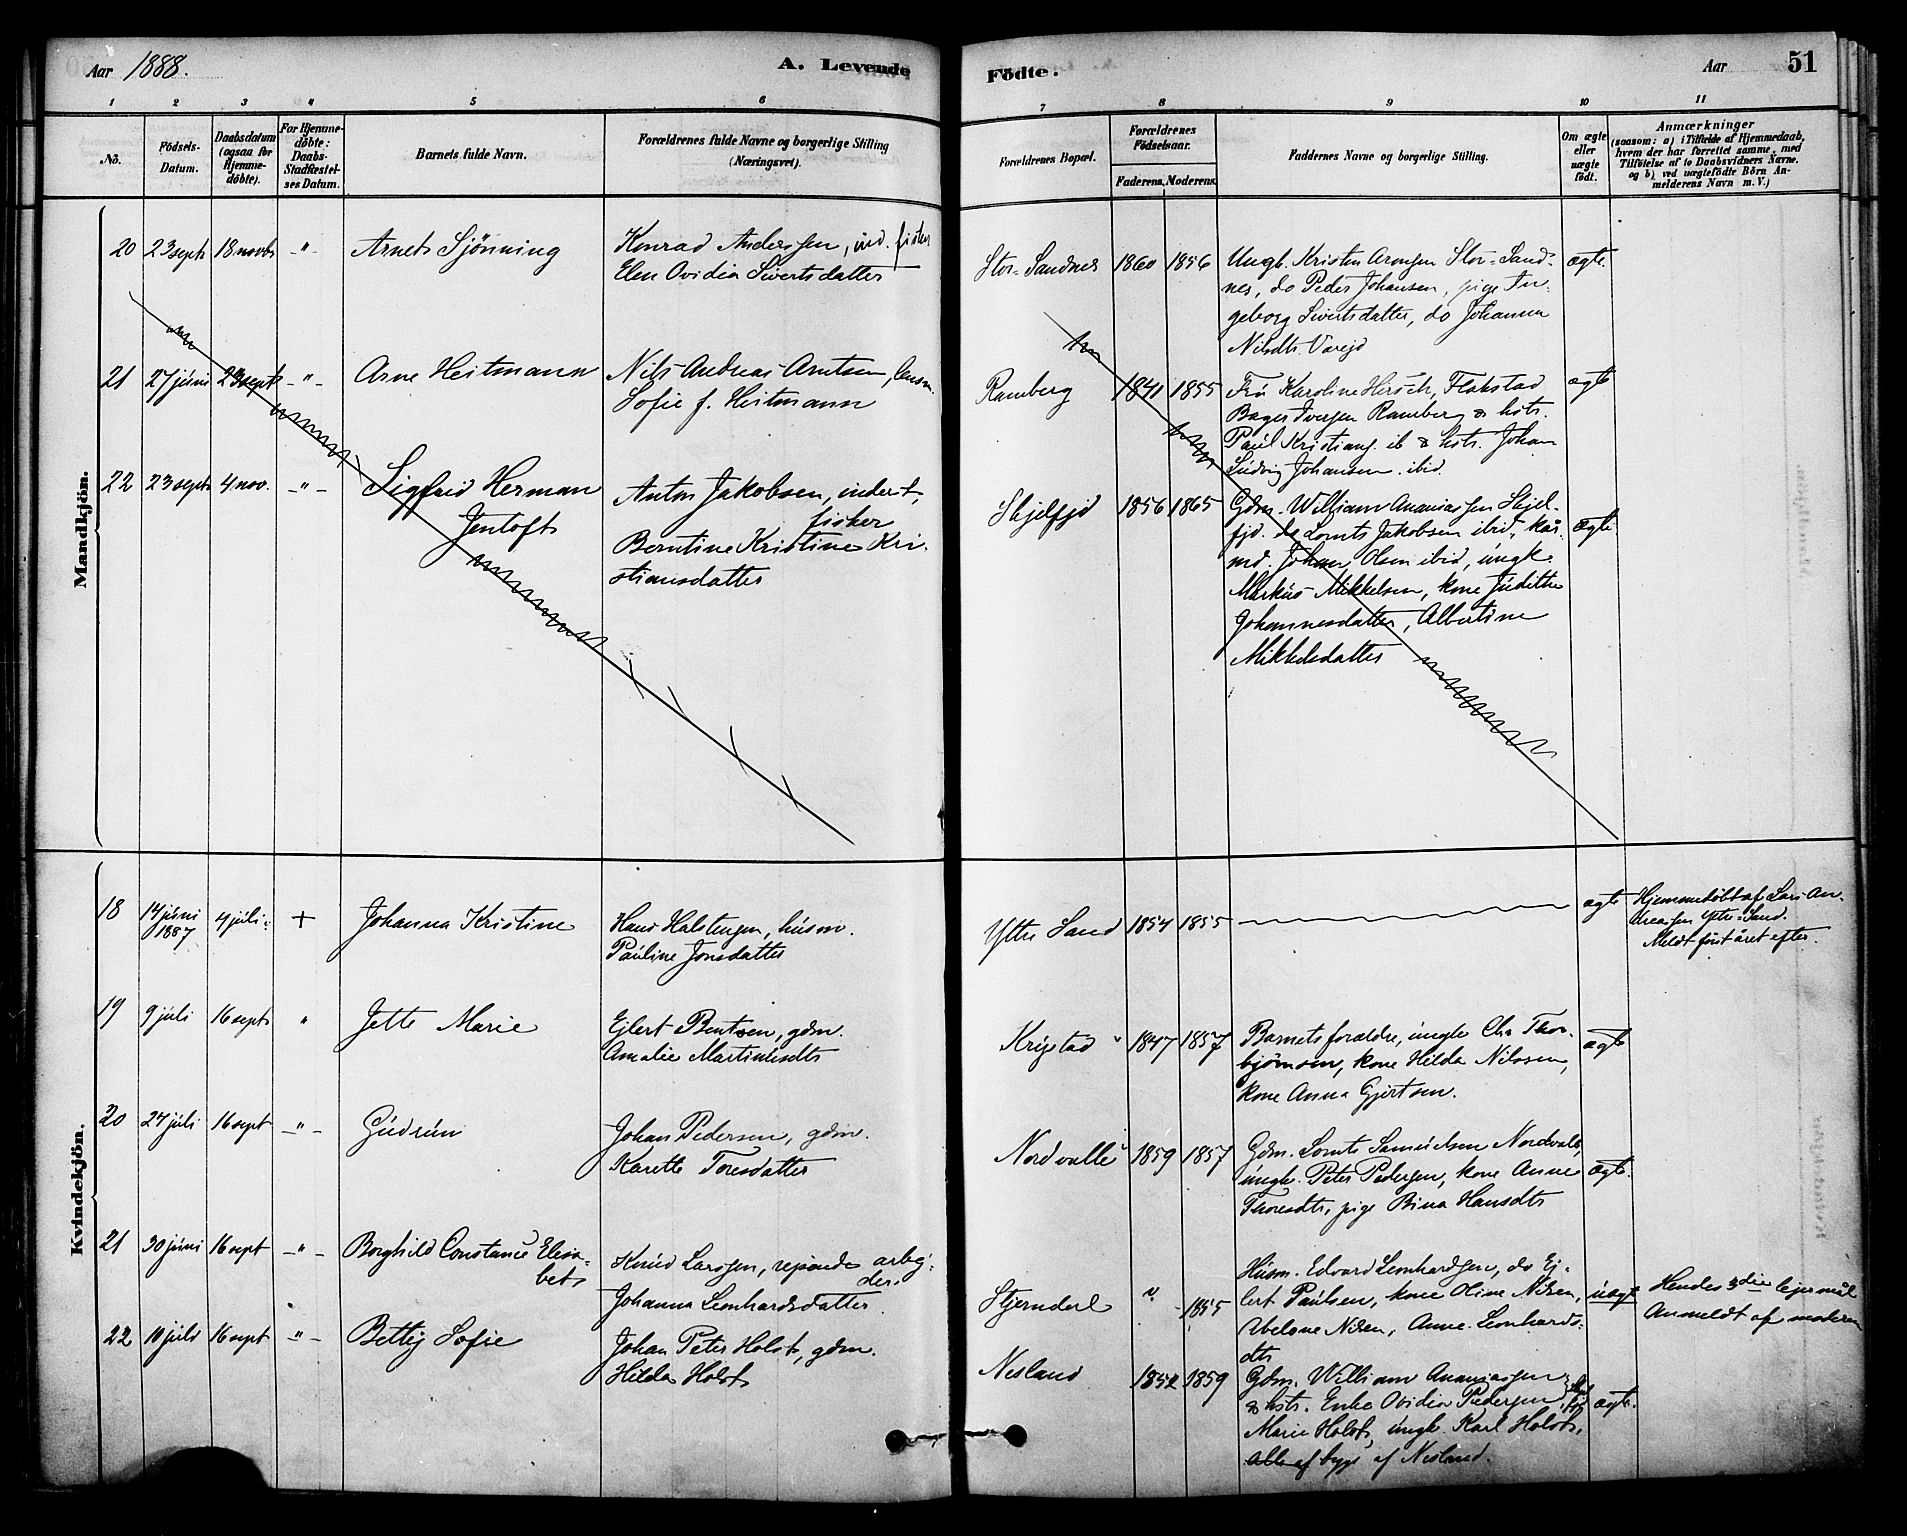 Aar 1888.
A. Levende
Födte.
Aar
51
1 2 3 4 5 6
7 8 9 10 11
No.
Födsels-Datum.
Daabsdatum (ogsaa for Hjemme-döbte).
For Hjemme-döbte: Daabs-Stadfæstel-ses Datum.
Barnets fulde Navn.
Forældrenes fulde Navne og borgerlige Stilling (Næringsvei).
Forældrenes Bopæl.
Forældrenes Födselsaar.
Faderens. Moderens.
Faddernes Navne og borgerlige Stilling.
Om ægte eller uægte födt.
Anmærkninger
(saasom: a) i Tilfælde af Hjemmedaab, hvem der har forrettet samme, med Tilföielse af to Daabsvidners Navne, og b) ved uægtefödte Börn An-melderens Navn m. V.)
Mandkjön.
20 23 sept 18 novb -"- Arnets Sjönning
Konrad Anderssen, ind. fisker
Elen Ovidia Sivertsdatter
Stor-Sandnes 1860 1856
Ungk. Kristen Aronsen Stor-Sand-
nes, do Peder Johansen, pige In-
geborg Sivertsdatter, do Johanna
Nilsdtr. Vareid
ægte.
21 27 juni 23 sept -"- Arne Heitmann
Nils Andreas Arntsen, lensm.
Sofie f. Heitmann
Ramberg 1841 1855
Fru Karoline Hirsch, Flakstad
Bager Iversen Ramberg & hstr.
Paul Kristians. ib & hstr. Johan
Ludvig Johansen ibid.
ægte
22 23 sept 4 nov. -"- Sigfrid Herman
Jentoft
Anton Jakobsen, inderst,
fisker
Berntine Kristine Kri-
stiansdatter
Skjelfjd 1856 1865
Gdm. William Ananiassen Skjel-
fjd. do Lornts Jakobsen ibid, kår-
md. Johan Olsen ibid, ungk.
Markus Mikkelsen, kone Judithe
Johannesdatter, Albertine
Mikkelsdatter
ægte.
Kvindekjön.
18 14 juni 1887 4 juli + Johanna Kristine
Hans Halstensen, husm.
Pauline Jonsdatter
Ytre Sand 1854 1855
ægte
Hjemmedøbt af Lars An-
dreassen Ytre-Sand.
Meldt først året efter.
19 9 juli 16 sept " Jette Marie
Ejlert Bentsen, gdm.
Amalie Martinusdtr
Krystad 1847 1857
Barnets forældre, ungk Chr Thor-
bjørnsen, kone Hilda Nilssen,
kone Anna Gjertsen.
ægte
20 24 juli 16 sept -"- Gudrun
Johan Pedersen, gdm.
Karette Toresdatter
Nordvalle 1859 1857
Gdm. Lornts Samuelsen Nordvalle,
ungk. Peter Pedersen, kone Anne
Thoresdtr, pige Bina Hansdtr
ægte.
21 30 juni 16 sept -"- Borghild Constance Elisa-
bets
Knud Larssen, rejsende arbej-
der
Johanna Leonhardsdatter
Stjerndal " 1855
Husm. Edvard Leonhardsen, do Ej-
lert Paulsen, kone Oline Nilsen,
Abelone Nilsen, Anne Leonhards-
dtr
uægt
Hendes 3die lejermål
Anmeldt af moderen
22 10 juli 16 sept -"- Betty Sofie
Johan Peter Holst, gdm.
Hilda Holst
Nesland 1852 1859
Gdm. William Ananiassen
& hstr. Enke Ovidia Pedersen,
Marie Holst, ungk. Karl Holst,
Alle af bygs af Nesland.
ægte.